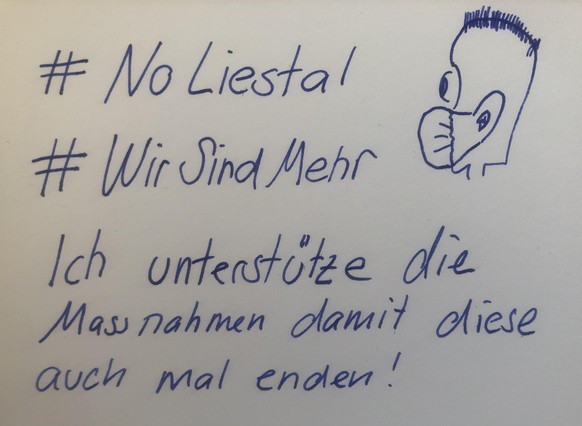 # No Liestal
# Wir Sind Mehr
Ich unterstütze die
Massnahmen damit diese
auch mal enden!